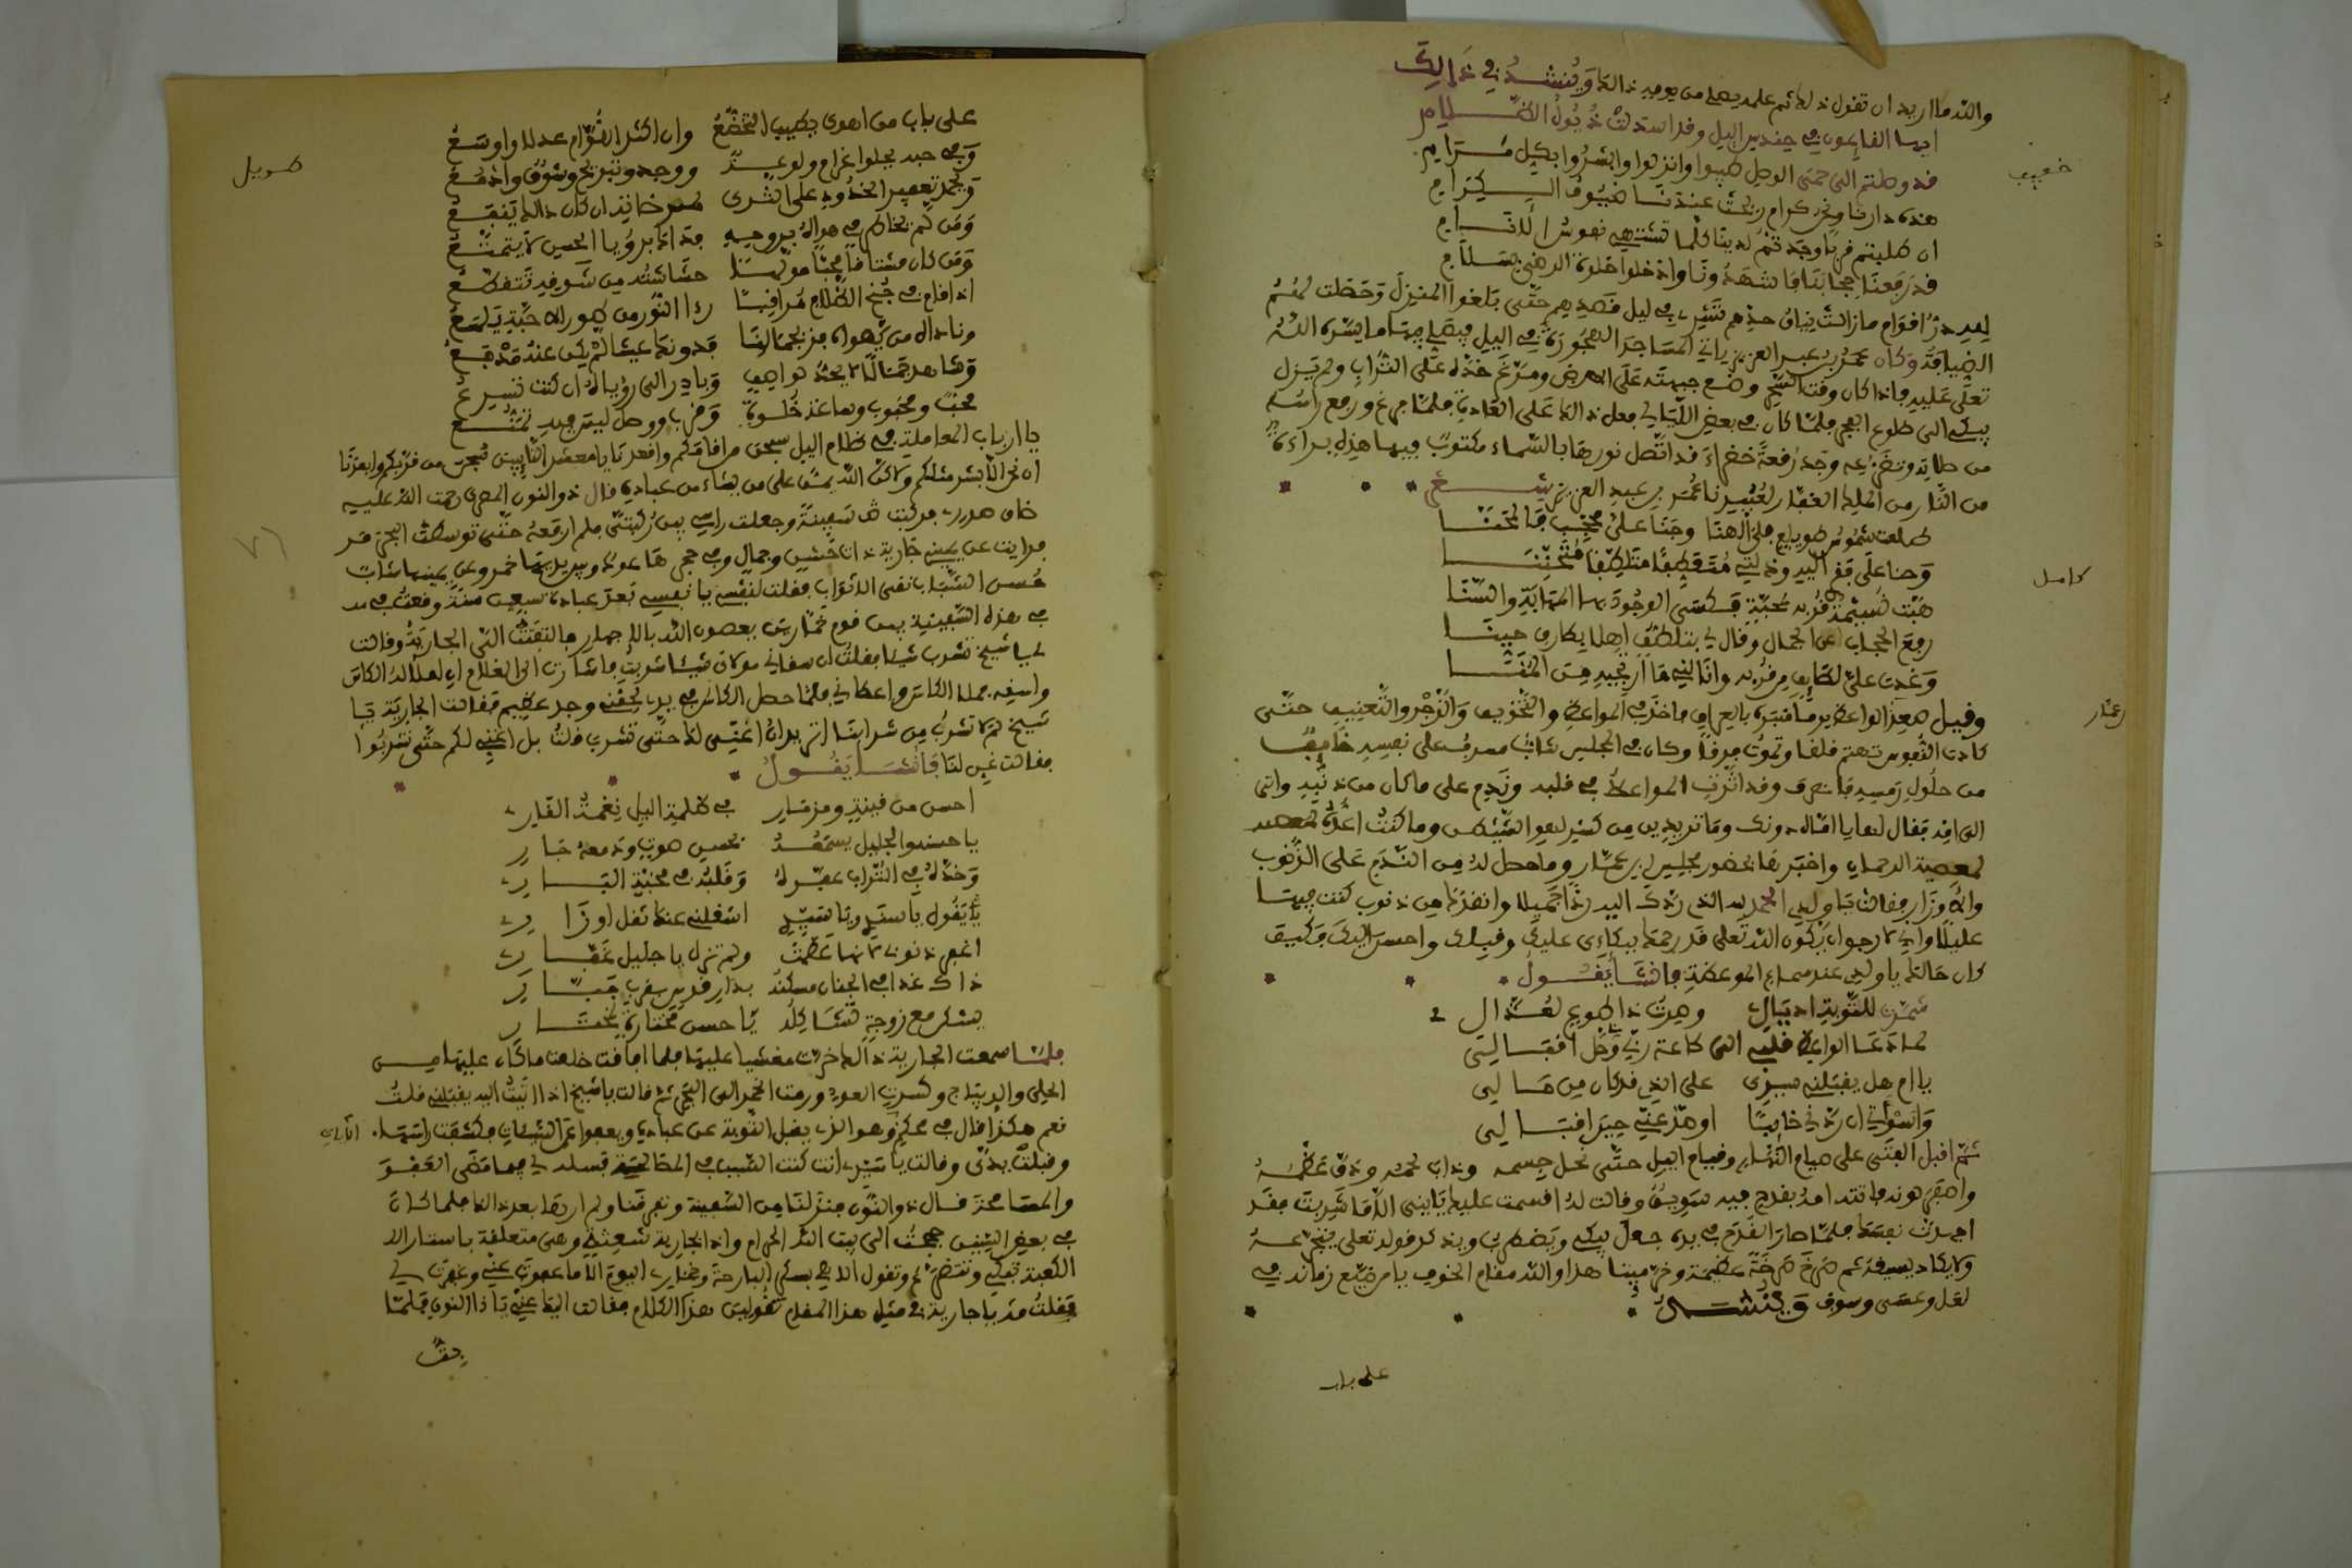 والله ما اريد ان تقول ذلك ثم علمه يصلي من يومه ذلك وينشد في ذالك
ايها القائمون في حندس اليل وقد استدلت ذيول الظلام
خفيف
قد وصلتم الى حمى الوصل طيبوا وانزلوا وابشروا بكل مرام
هذه دارنا ونحن كرام ربحت عندنا ضيوف الكرام
ان طلبتم قربا وجدتم لدينا كلما تشتهي نفوس الانام
قد رفعنا حجابنا فاشهدونا وادخلوا خلوة الرضى بسلام
لله در اقوام مازالت نياق حزهم تسير في ليل قصدهم حتى بلغوا المنزل وحطت لهم
الضيافة وكان عمر بن عبد العزيز ياتي المساجد المهجورة في اليل فيصلي فيها ما يسره الله
تعلى عليه فاذا كان وقت السحر وضع جبهته على الارض ومرغ خده على التراب ولم يزل
يبكي الى طلوع الفجر فلما كان في بعض الليالي فعل ذالك على العادة فلما فرغ ورفع راسه
من صلاته وتضرعه وجد رقعة خضراء قد اتصل نورها بالسماء مكتوب فيها هذه براءة
من النار من الملك الغفار لعبيدنا عمر بن عبد العزيز شعر
طلعت شموس طوالع فلك الهنا وجنا على محب فالحنا
كامل
وحنا على فقر اليه وذلتي متعطفا متلطفا متحننا
هبت نسيمة قربه لمحبة فكسى الوجود بها المهابة والسنا
رفع الحجاب عن الجمال وقال لي بتلطف اهلا بطارق حينا
وغدت على لطايف من قربه وانالني ما ارتجيه من المنا
وقيل صعد الواعظ يوما منبره بالعراق فاخذ في المواعظ والتخويف والزجر والتعنيف حتى
كادت النفوس تهتم قلقا وتموت فرقا وكان في المجلس شاب مسرف على نفسه خايفا
من حلول رمسه فانصرف وقد اثرت المواعظ في قلبه وندم على ما كان من ذنبه واتى
الى امه فقال لها يا اماه دونك وما تريدين من كسر لهو الشيطن وما كنت اعده لمعصية
لمعصية الرحمان واخبرها بحضور مجلس بن عمار وما حصل له من الندم على الذنوب
والاوزار فقالت يا ولدي الحمد لله الذي ردك اليه ردا جميلا وانقذك من ذنوب كنت فيها
عليلا واني لارجو ان يكون الله تعلى قد رحمك ببكاءي عليك وقبلك واحسن اليك فكيف
كان حالك يا ولدي عند سماع الموعظة فانشا يقول
شمرت للتوبة اذيالي وصرت ذا طوع لعذالي
لما دعا الواعظ قلبي الى طاعة ربي حل اقفالي
يا ام هل يقبلني سيدي على الذي قد كان من حالي
واسوأتي ان ردني خائبا او صد عني حين اقبالي
ثم اقبل الفتى على صيام النهار وقيام اليل حتى نحل جسمه وذاب لحمه ودق عظمه
واصفر لونه فاتته امه بقدح فيه سويق وقالت له اقسمت عليك يا بني الا ما شربت فقد
اجهدت نفسك فلما صار القدح في يده جعل يبكي ويضطرب ويذكر قوله تعلى يتجرعه
ولا يكاد يسيغه ثم صرخ صرخة عظيمة وخر ميتا هذا والله مقام الخوف يا من ضيع زمانه في
لعل وعسى وسوف وينشد
على باب
على باب من اهوى يطيب التخضع وان اكثر اللوام عذلا واوسع
طويل
وفي حبه يحلوا غرام ولوعة ووجد وتبريح وشوق وادمع
ويحمد تعفير الخدود على الثرى لصب خاين ان كان ذالك ينفع
ومن لم يخاطر في هواه بروحه فذاك برؤيا الحسن لا يتمتع
ومن كان مشتاقا محبا مولها حشاشته من شوقه تتقطع
اذا قام في جنح الظلام مراقبا رءا النور من طور المحبة يلمع
وناداه من يهواه فز بجمالنا فدونك عيشا لم يكن عنه مدفع
وشاهد جمالا لا يحد لواصف وبادر الى رؤياه ان كنت تسرع
محب ومحبوب وساعة خلوة وقرب ووصل ليس فيه تمنع
يا ارباب المعاملة في ظلام اليل سبحن من اقامكم واقعدنا يا معشر التايبين سبحن من قربكم وابعدنا
ان نحن الا بشر مثلكم ولكن الله يمن على من يشاء من عباده قال ذو النون المصري رحمت الله عليه
فركبت في سفينة وجعلت راسي بين ركبتي فلم ارفعه حتى توسطت البحر
فرايت عن يميني جارية ذات حسن وجمال وفي حجرها عود وبين يديها خمر وعن يمينها شاب
حسن الشباب نقى الاثواب فقلت لنفسي يا نفسي بعد عبادة سبعين سنة وقعت في
في هذه السفينة بين قوم خمارين يعصون الله بالاجهار فالتفتت الي الجارية وقالت
لي يا شيخ تشرب شيئا فقلت ان سقاني مولاي شيئا شربت فاشارت الى الغلام ان املا له الكاس
واسقه فملا الكاس واعطاني فلما حصل الكاس في يدي لحقني وجد عظيم فقالت الجارية يا
شيخ لم لا تشرب من شرابنا اتريد ان اغني لك حتى تشرب قلت بل اغني لكم حتى تشربوا
فقالت غن لنا فانشا يقول
احسن من قينة ومزمار في ظلمة اليل نغمة القار
يا حسنه والجليل يسمعه بحسن صوت ودمعه جار
وخده في التراب عفره وقلبه في محبة البار
يقول يا سيدي ويا سندي اشغلني عنك ثقل اوزار
اغفر ذنوبي لانها عظمت ولم تزل يا جليل غفار
ذاك غدا في الجنان مسكنه بدار قدس بقرب جبار
يسكن مع زوجة تشاكله يا حسن مختارة لمختار
فلما سمعت الجارية ذالك خرت مغشيا عليها فلما افاقت خلعت ما كان عليها من
الحلى والديباج وكسرت العود ورمت الخمر الى البحر ثم قالت يا شيخ اذا انبت اليه يقبلني قلت
نعم هكذا قال في محكم وهو الذي يقبل التوبة عن عباده ويعفوا عن السيئات فكشفت راسها
وقبلت يدي وقالت يا سيدي انت كنت السبب في المصالحة فسله لي فيما مضى العفو
والمسامحة قال ذو النون فنزلنا من السفينة وتفرقنا ولم ارها بعد ذالك فلما كان
في بعض السنين حججت الى بيت الله الحرام واذا بجارية شعثة وهي متعلقة باستار الا
الكعبة تبكي وتتضرع وتقول الاهي بسكري البارحة وخماري اليوم الا ما عفوت عني وغفرت لي
فقلت مه يا جارية في مثل هذا المقام تقولين هذا الكلام فقالت اليك عني يا ذا النون فلما